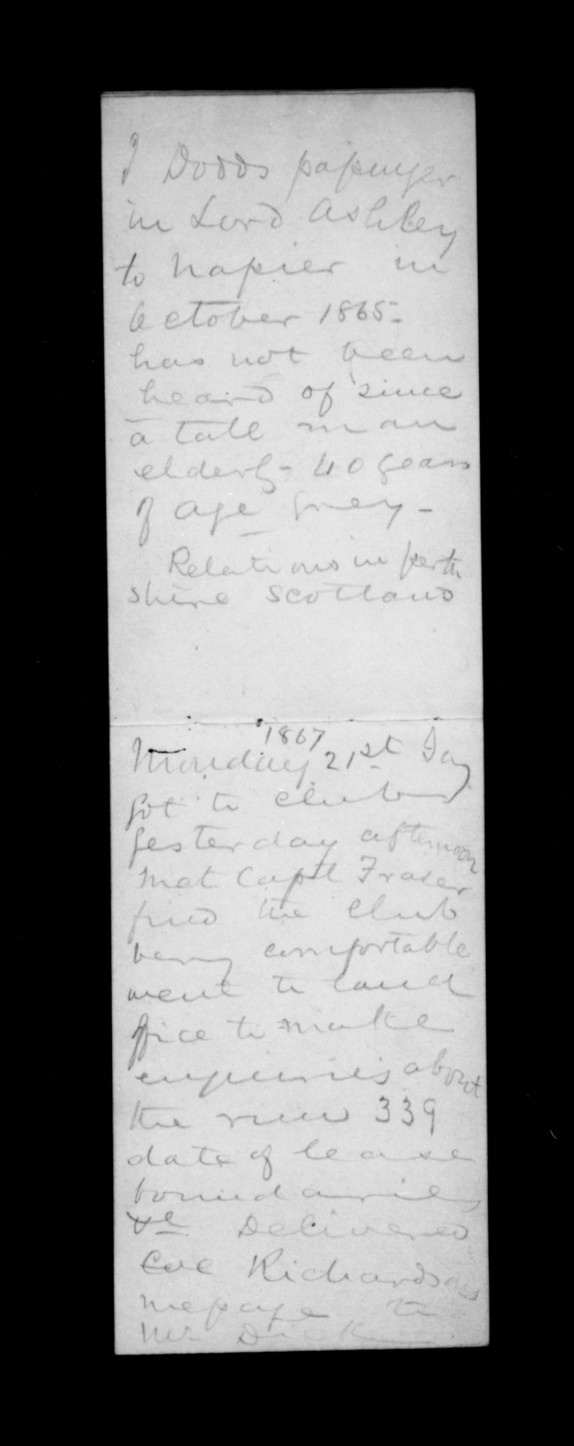 J Dodds passenger
in Lord Ashley
to Napier in
October 1865-
has not been
heard of since
a tall man
elderly - 40 years
of age grey -
Relations in perth
shire Scotland
1867
Monday 21st Jay
Got to club
yesterday afternoon
met Capt Fraser
find the Club
very comfortable
went to land
office to make
enquiries about
the run 339
date of lease
boundaries
&c Delivered
Col Richardsons
message to
Mr